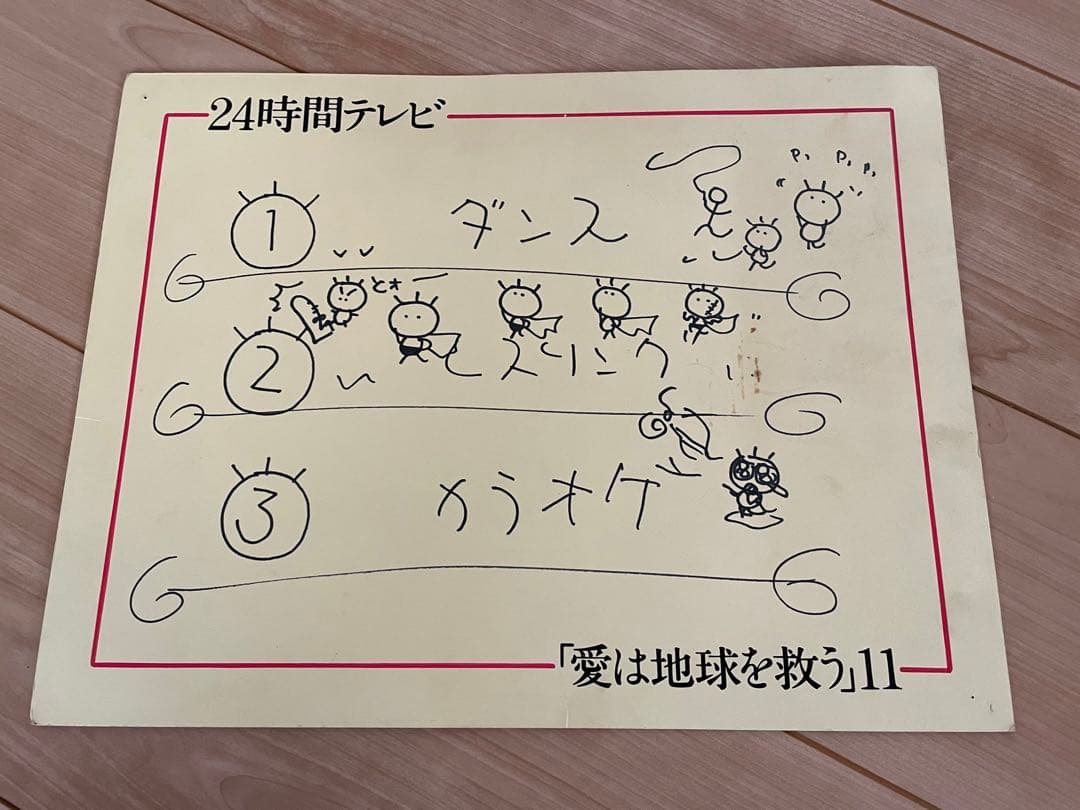 24時間テレビ
P. P. P.
① ダンス
とォー
②
③ カラオケ
「愛は地球を救う」11